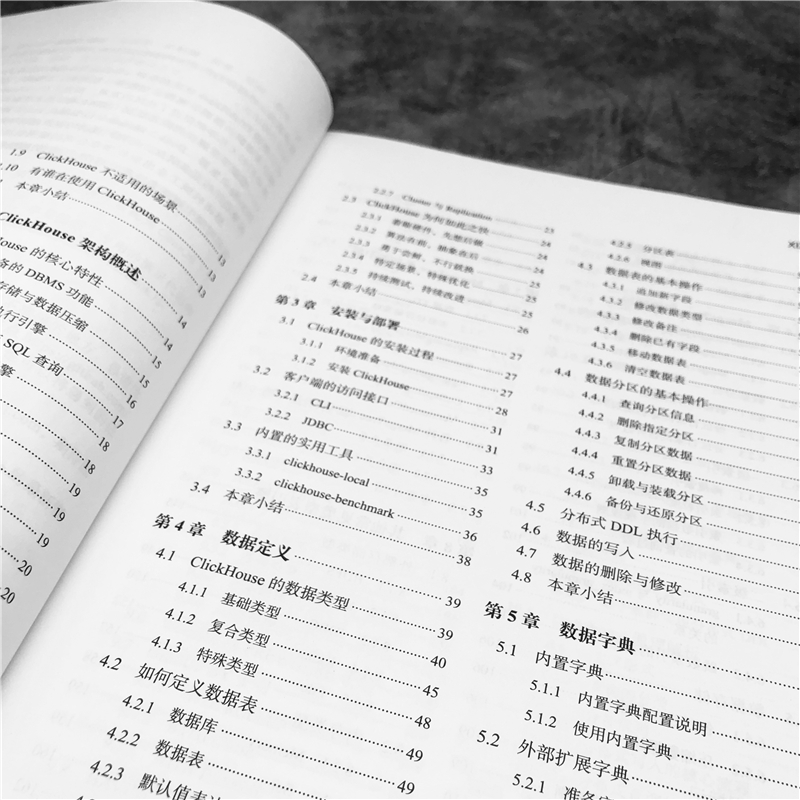 1.9 ClickHouse 不适用的场景 13
.10 有谁在使用 ClickHouse 13
本章小结 13
ClickHouse 架构概述
House 的核心特性 14
备的 DBMS 功能 14
存储与数据压缩 15
执行引擎 15
SQL 查询 16
擎 17
18
18
19
19
19
20
20
2.2.7 Cluster 与 Replication 23
2.3 ClickHouse 为何如此之快 24
2.3.1 着眼硬件，先想后做 24
2.3.2 算法在前，抽象在后 24
2.3.3 勇于尝鲜，不行就换 25
2.3.4 特定场景，特殊优化 25
2.3.5 持续测试，持续改进 25
2.4 本章小结 26
第 3 章 安装与部署 27
3.1 ClickHouse 的安装过程 27
3.1.1 环境准备 27
3.1.2 安装 ClickHouse 28
3.2 客户端的访问接口 31
3.2.1 CLI 31
3.2.2 JDBC 33
3.3 内置的实用工具 35
3.3.1 clickhouse-local 35
3.3.2 clickhouse-benchmark 36
3.4 本章小结 38
第 4 章 数据定义 39
4.1 ClickHouse 的数据类型 39
4.1.1 基础类型 40
4.1.2 复合类型 45
4.1.3 特殊类型 48
4.2 如何定义数据表 49
4.2.1 数据库 49
4.2.2 数据表
4.2.3 默认值表
4.2.5 分区表
4.2.6 视图
4.3 数据表的基本操作
4.3.1 追加新字段
4.3.2 修改数据类型
4.3.3 修改备注
4.3.4 删除已有字段
4.3.5 移动数据表
4.3.6 清空数据表
4.4 数据分区的基本操作
4.4.1 查询分区信息
4.4.2 删除指定分区
4.4.3 复制分区数据
4.4.4 重置分区数据
4.4.5 卸载与装载分区
4.4.6 备份与还原分区
4.5 分布式 DDL 执行
4.6 数据的写入
4.7 数据的删除与修改
4.8 本章小结
第 5 章 数据字典
5.1 内置字典
5.1.1 内置字典配置说明
5.1.2 使用内置字典
5.2 外部扩展字典
5.2.1 准备字